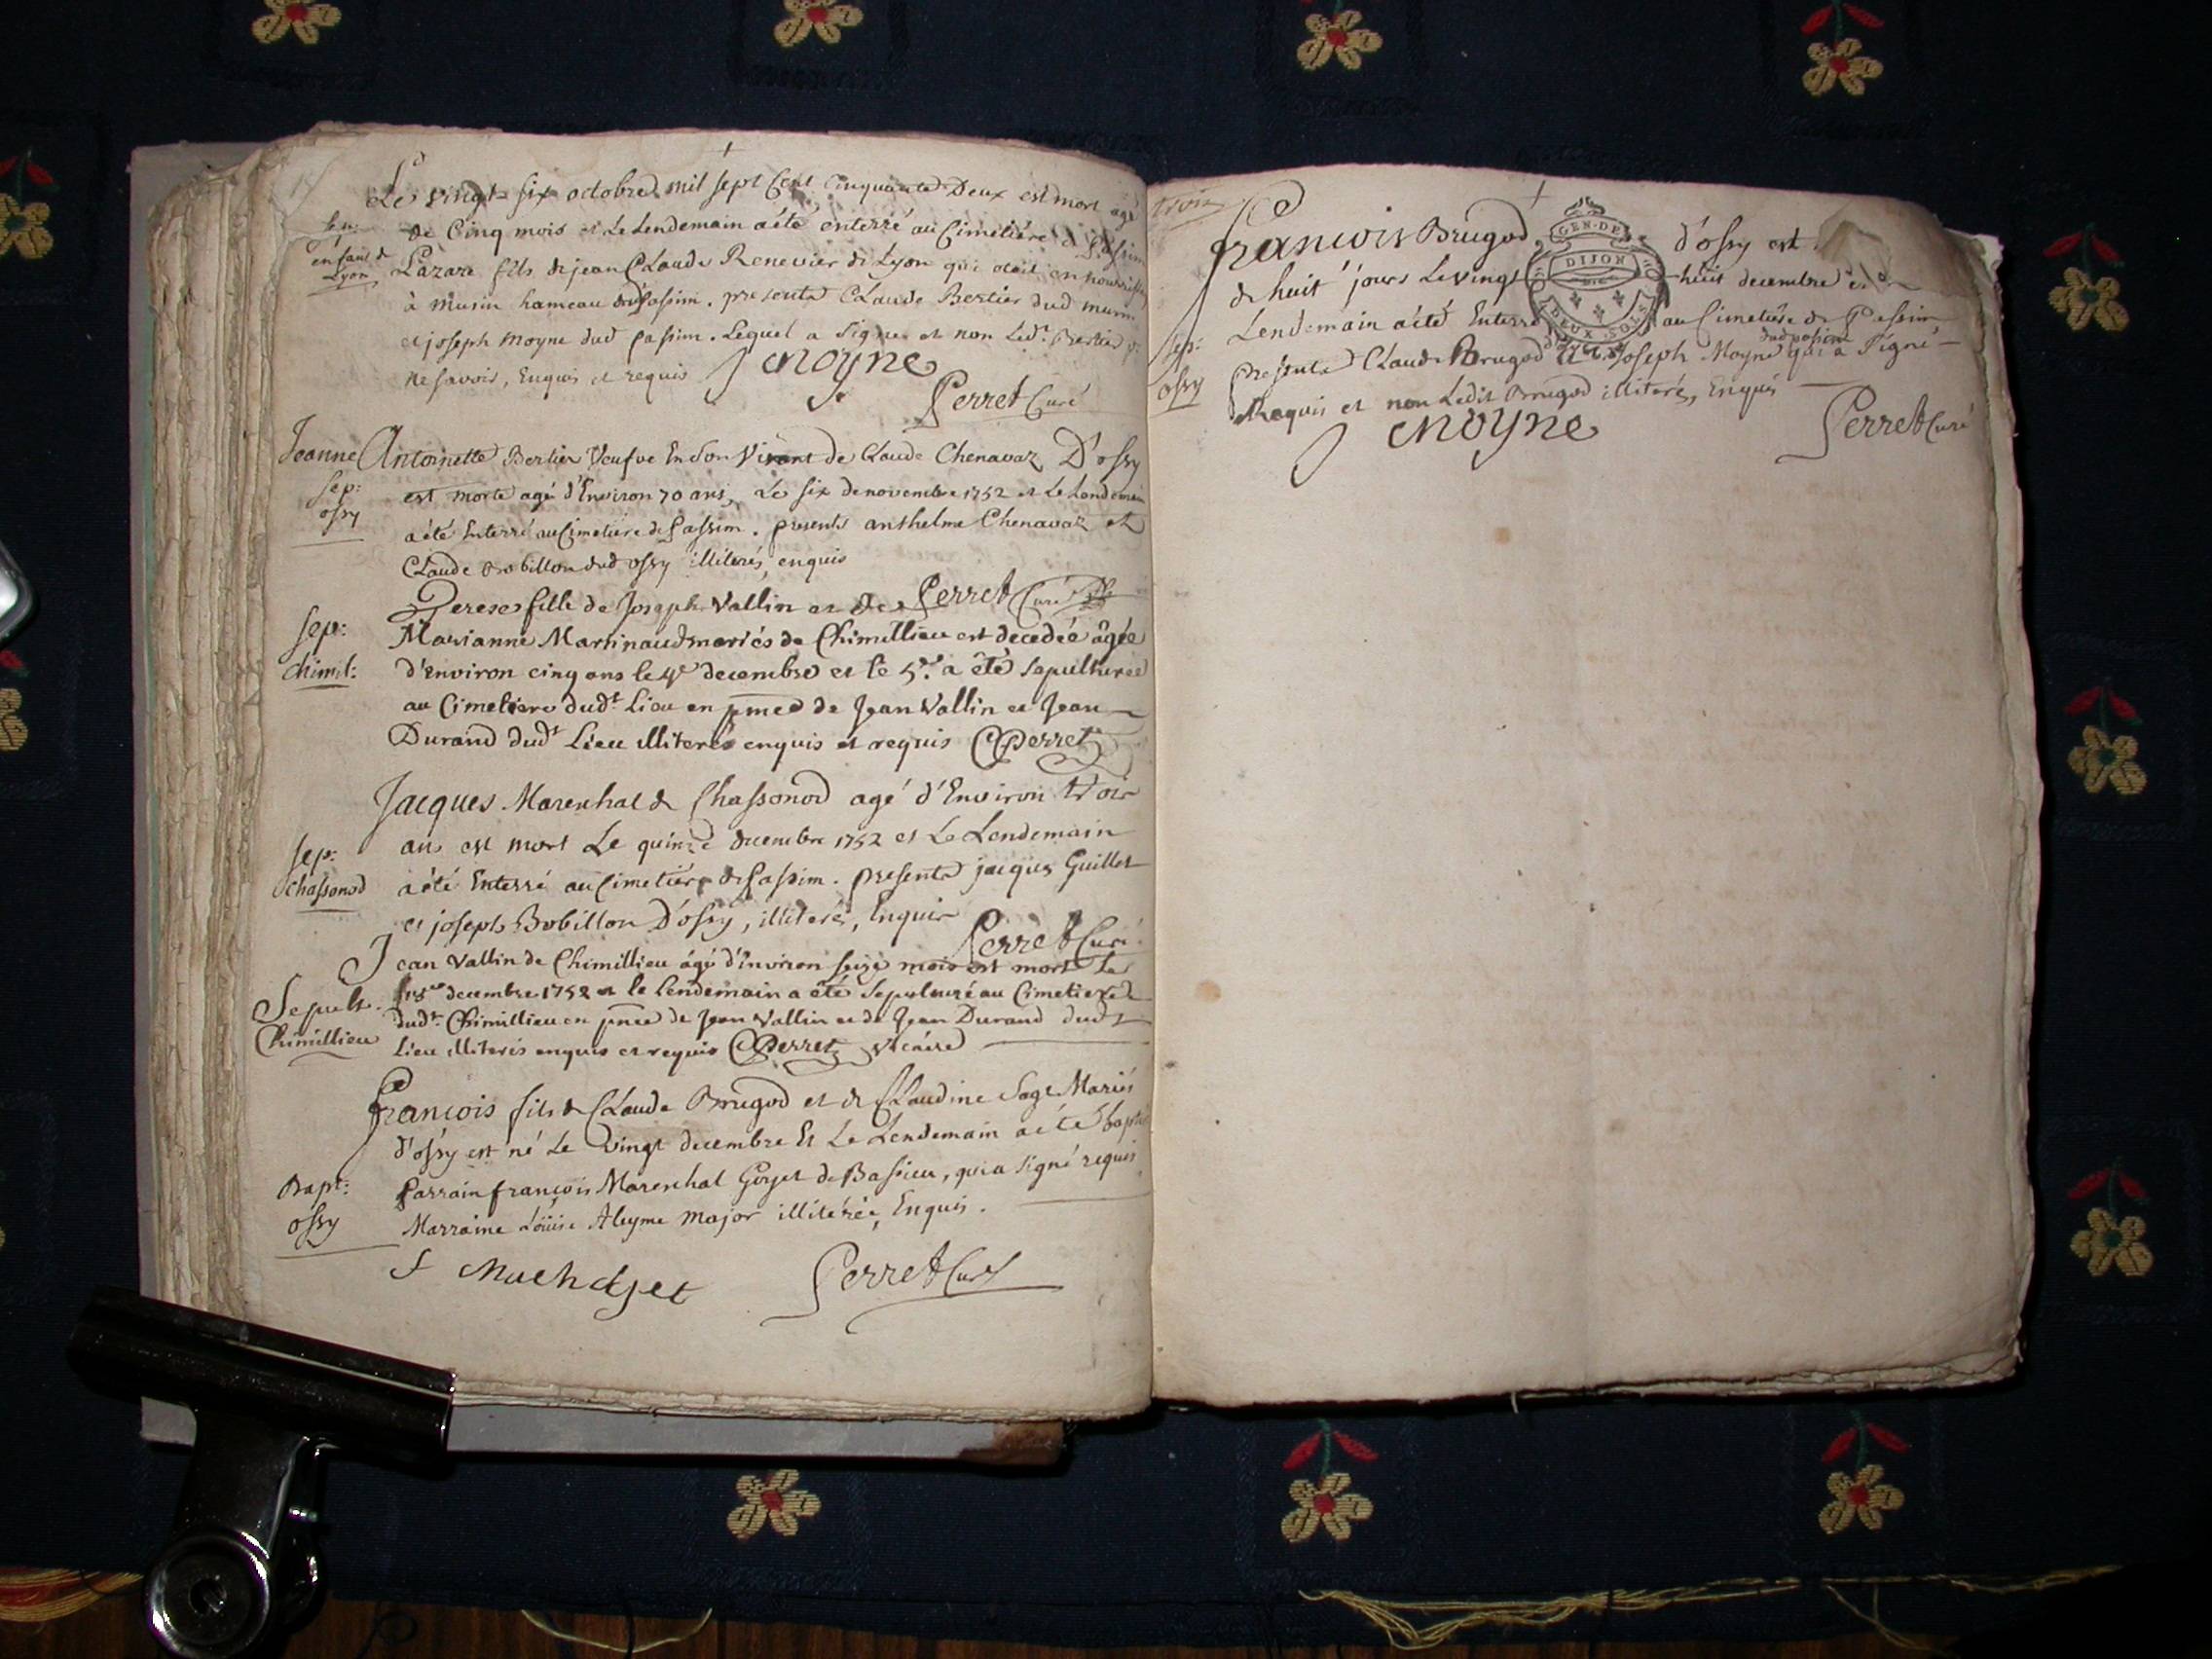 Le vingt six octobre mil sept Cent cinquante Deux est mort agé
sep:
de Cinq mois et Le Lendemain a été enterré au Cimetiére de Passim
enfant de
Lyon
Lazare fils de jean CLaude Renevier de Lyon qui etoit en nourrisse
à musin hameau de Passim. presents CLaude Bertier dud musin
et joseph moyne dud passim. Lequel a signé et non Led.t Bertier p.r
ne savoir, Enquis et requis
J moyne
Perret Curé
Jeanne Antoinette Bertier Veufve En son Vivant de Claude Chenavaz D'ossy
sep:
ossy
est morte agé d'Environ 70 ans, Le six de novembre 1752 et Le Lendemain
a été Enterré au Cimetiere de Passim. presents anthelme Chenavaz et
CLaude Bobillon dud ossy illiterés, enquis
Perret Curé
Terese fille de Joseph Vallin et de
sep:
chimil:
Marianne Martinaud mariés de Chimillieu est decedée âgée
d'Environ cinq ans le 4e decembre et le 5.e a été sepulturée
au Cimetiere dud.t Lieu en pnce de Jean Vallin et Jean
Durand dud.t Lieu illiterés enquis et requis Perret
Jacques Marenhal de Chassonod agé d'Environ trois
sep:
chassonod
ans est mort Le quinze decembre 1752 et Le Lendemain
a été Enterré au Cimetiére de Passim. presents jacques Guillot
et joseph Bobillon D'ossy, illiterés, Enquis
Perret Curé.
Jean Vallin de Chimillieu âgé d'Environ seize mois est mort le
Sepult.
Chimillieu
18e decembre 1752 et le lendemain a été sepulturé au Cimetiere
dud.t Chimillieu en pnce de Jean Vallin et de Jean Durand dud.t
Lieu illiterés enquis et requis Perret Vicaire
François fils de CLaude Brugod et de CLaudine Sage Mariés
d'ossy est né Le vingt decembre Et Le Lendemain a été bapt
Bapt:
ossy
Parrain françois Marenhal Gojet de Bassieu, qui a signé requis
Marraine Loüise Aleyme Major illiterée, Enquis.
Perret Curé
trois
françois Brugod d'ossy est
GEN. DE
DIJON
DEUX SOLS
de huit jours Le vingt huit decembre et Le
sep:
ossy
Lendemain a été Enterré au Cimetiére de Passim
dud passim
presents Claude Brugod et Joseph Moyne qui a signé
Requis et non Ledit Brugod illiteré, Enquis
J moyne
Perret Curé